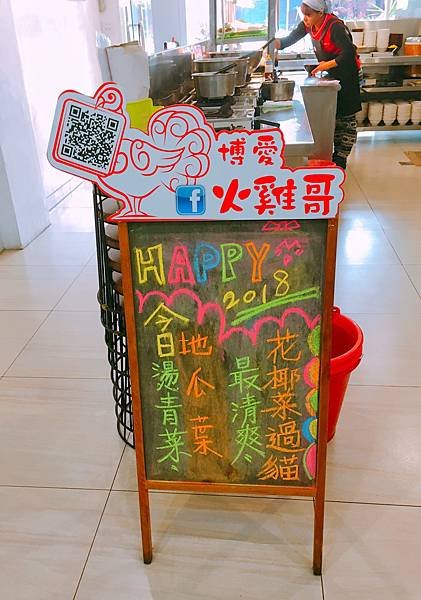 博愛
火雞哥
HAPPY
2018
今日
湯青菜
地瓜葉
最清爽
花椰菜過貓